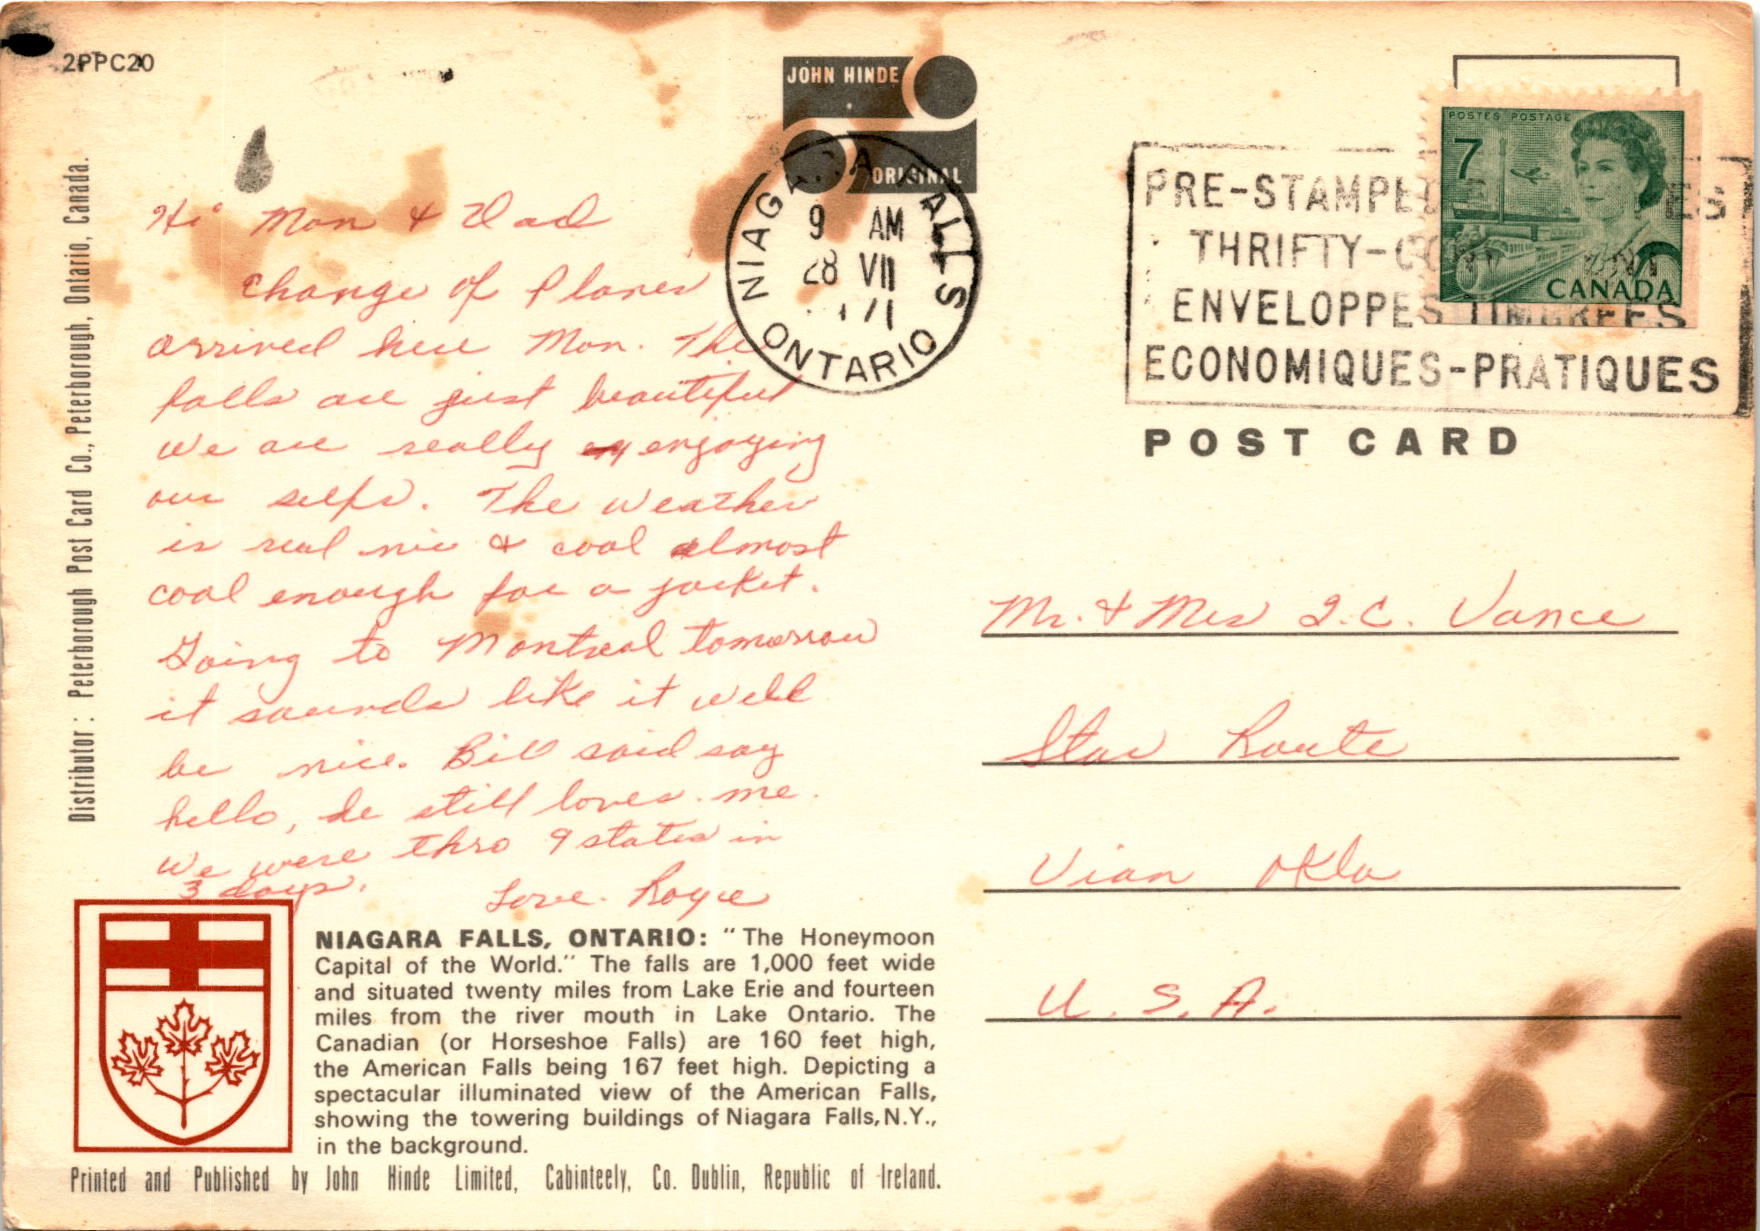 2PPC20
JOHN HINDE
ORIGINAL
NIAGARA FALLS
9 AM
28 VII
71
ONTARIO
PRE-STAMPED
THRIFTY-
ENVELOPPES TIMBREES
ECONOMIQUES-PRATIQUES
POSTES POSTAGE
7
CANADA
POST CARD
Distributor : Peterborough Post Card Co., Peterborough, Ontario, Canada.
Hi Mom & Dad
Change of Planes
arrived here Mon. The
falls are just beautiful
we are really engoying
our selfs. The weather
is real nice & cool almost
cool enough for a jacket.
Going to Montreal tomorrow
it sounds like it well
be nice. Bill said say
hello, he still loves me.
We were thro 9 states in
3 days.
Love. Royce
Mr. & Mrs J.C. Vance
Star Route
Vian Okla
U.S.A.
NIAGARA FALLS, ONTARIO: "The Honeymoon
Capital of the World." The falls are 1,000 feet wide
and situated twenty miles from Lake Erie and fourteen
miles from the river mouth in Lake Ontario. The
Canadian (or Horseshoe Falls) are 160 feet high,
the American Falls being 167 feet high. Depicting a
spectacular illuminated view of the American Falls,
showing the towering buildings of Niagara Falls, N.Y.,
in the background.
Printed and Published by John Hinde Limited, Cabinteely, Co. Dublin, Republic of Ireland.